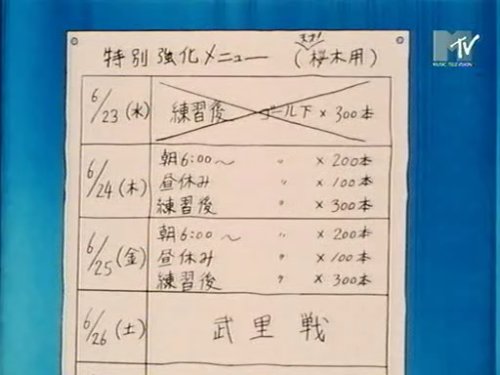 特別強化メニュー (桜木用)
MTV
MUSIC TELEVISION
6/23(水) 練習後 ゴール下 × 300本
6/24(木) 朝6:00〜 〃 × 200本
昼休み 〃 × 100本
練習後 〃 × 300本
6/25(金) 朝6:00〜 〃 × 200本
昼休み 〃 × 100本
練習後 〃 × 300本
6/26(土) 武里戦